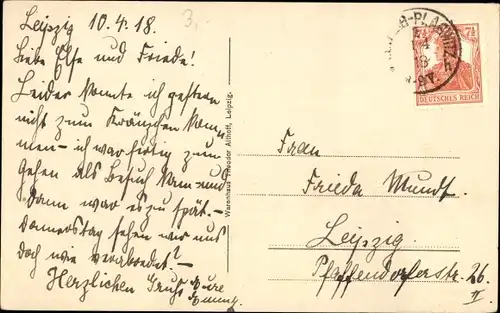 Leipzig 10.4.18.
3.
Liebe Else und Friede!
Leider konnte ich gestern
nicht zum Kränzchen kom
men – ich war fertig zum
Gehen als Besuch kam und
dann war es zu spät. –
Donnerstag sehen wir uns
doch wie verabredet? –
Herzlichen Gruß Eure
Warenhaus Theodor Althoff, Leipzig.
LEIPZIG-PLAGWITZ
7½
DEUTSCHES REICH
Frau
Frieda Mundt.
Leipzig.
Pfaffendorferstr. 26.
II